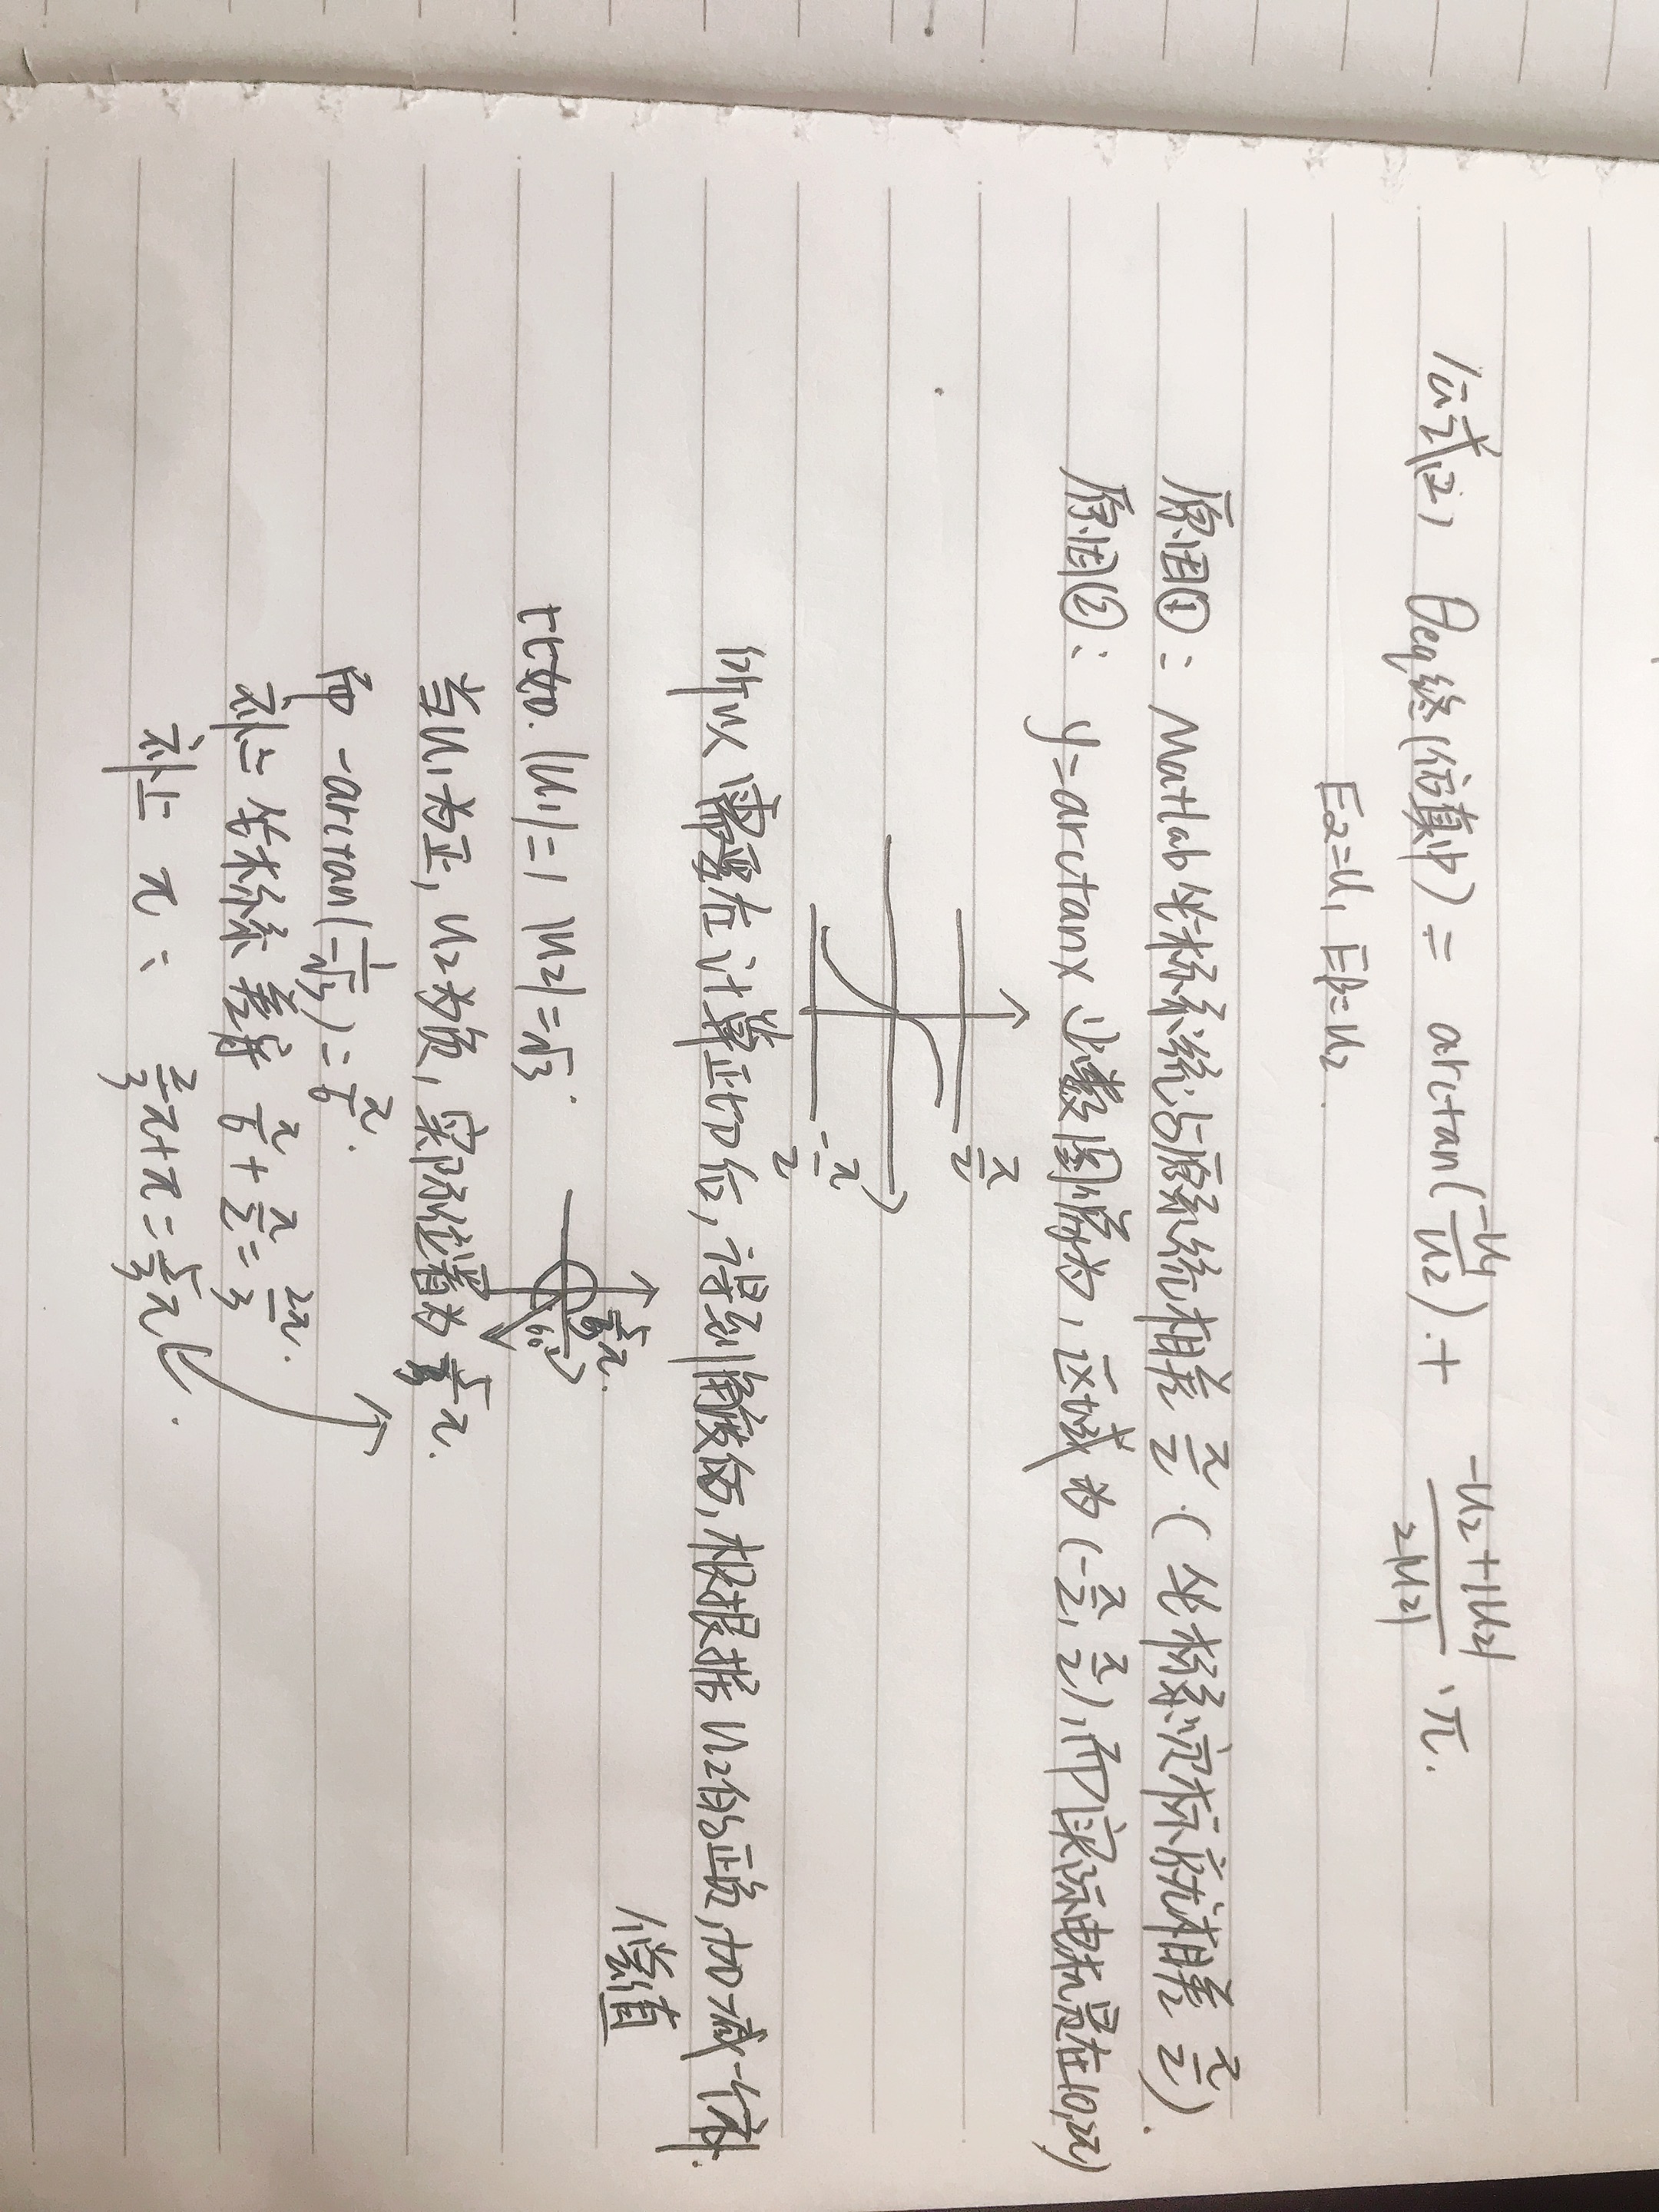 公式(2), θeq终(仿真中) = arctan(-u1/u2) + (-u2+|u2|)/(2|u2|)·π.
Eα=u1 Eβ=u2.
原因①: Matlab坐标系统与原系统相差 π/2 (坐标系定标就相差 π/2).
原因②: y=arctanx 函数图像为, 区域为(-π/2, π/2),而实际电机是在(0,2π)
π/2
-π/2
所以需要在计算正切后,得到角度后,根据u2的正负,加减一个补
偿值
比如. |u1|=1 |u2|=√3.
5/3π.
60°
当u1为正, u2为负, 实际位置为 5/3π.
即 -arctan(1/-√3)=π/6.
补上 坐标系差异 π/6+π/2=2π/3.
补上 π: 2/3π+π=5/3π.